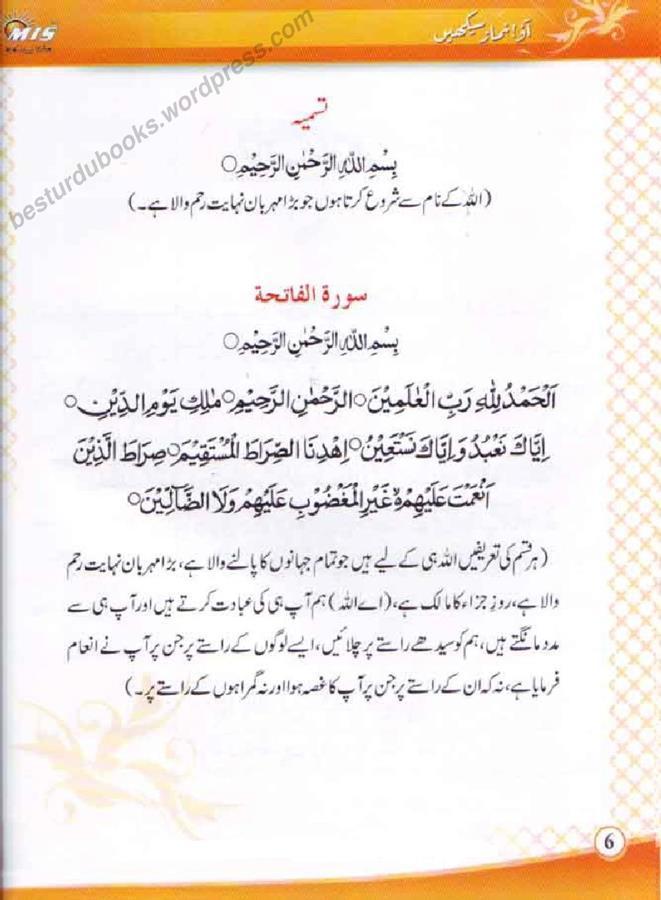 آؤ! نماز سیکھیں
MIS
besturdubooks.wordpress.com
تسمیہ
بِسْمِ اللّٰهِ الرَّحْمٰنِ الرَّحِيْمِ○
(اللہ کے نام سے شروع کرتا ہوں جو بڑا مہربان نہایت رحم والا ہے۔)
سورة الفاتحة
بِسْمِ اللّٰهِ الرَّحْمٰنِ الرَّحِيْمِ○
اَلْحَمْدُ لِلّٰهِ رَبِّ الْعٰلَمِيْنَ○ الرَّحْمٰنِ الرَّحِيْمِ○ مٰلِكِ يَوْمِ الدِّيْنِ○
اِيَّاكَ نَعْبُدُ وَاِيَّاكَ نَسْتَعِيْنُ○ اِهْدِنَا الصِّرَاطَ الْمُسْتَقِيْمَ○ صِرَاطَ الَّذِيْنَ
اَنْعَمْتَ عَلَيْهِمْ ۙ غَيْرِ الْمَغْضُوْبِ عَلَيْهِمْ وَلَا الضَّآلِّيْنَ○
(ہر قسم کی تعریفیں اللہ ہی کے لیے ہیں جو تمام جہانوں کا پالنے والا ہے، بڑا مہربان نہایت رحم
والا ہے، روزِ جزاء کا مالک ہے، (اے اللہ) ہم آپ ہی کی عبادت کرتے ہیں اور آپ ہی سے
مدد مانگتے ہیں، ہم کو سیدھے راستے پر چلائیں، ایسے لوگوں کے راستے پر جن پر آپ نے انعام
فرمایا ہے، نہ کہ ان کے راستے پر جن پر آپ کا غصہ ہوا اور نہ گمراہوں کے راستے پر۔)
6